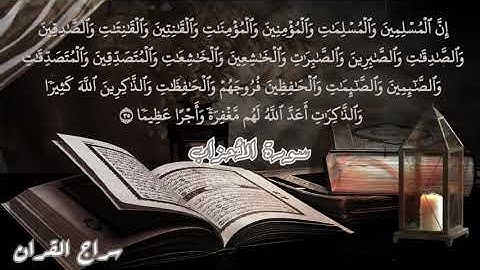 إِنَّ الْمُسْلِمِينَ وَالْمُسْلِمَاتِ وَالْمُؤْمِنِينَ وَالْمُؤْمِنَاتِ وَالْقَانِتِينَ وَالْقَانِتَاتِ وَالصَّادِقِينَ
وَالصَّادِقَاتِ وَالصَّابِرِينَ وَالصَّابِرَاتِ وَالْخَاشِعِينَ وَالْخَاشِعَاتِ وَالْمُتَصَدِّقِينَ وَالْمُتَصَدِّقَاتِ
وَالصَّائِمِينَ وَالصَّائِمَاتِ وَالْحَافِظِينَ فُرُوجَهُمْ وَالْحَافِظَاتِ وَالذَّاكِرِينَ اللَّهَ كَثِيرًا
وَالذَّاكِرَاتِ أَعَدَّ اللَّهُ لَهُم مَّغْفِرَةً وَأَجْرًا عَظِيمًا ٣٥
سورة الأحزاب
سراج القران